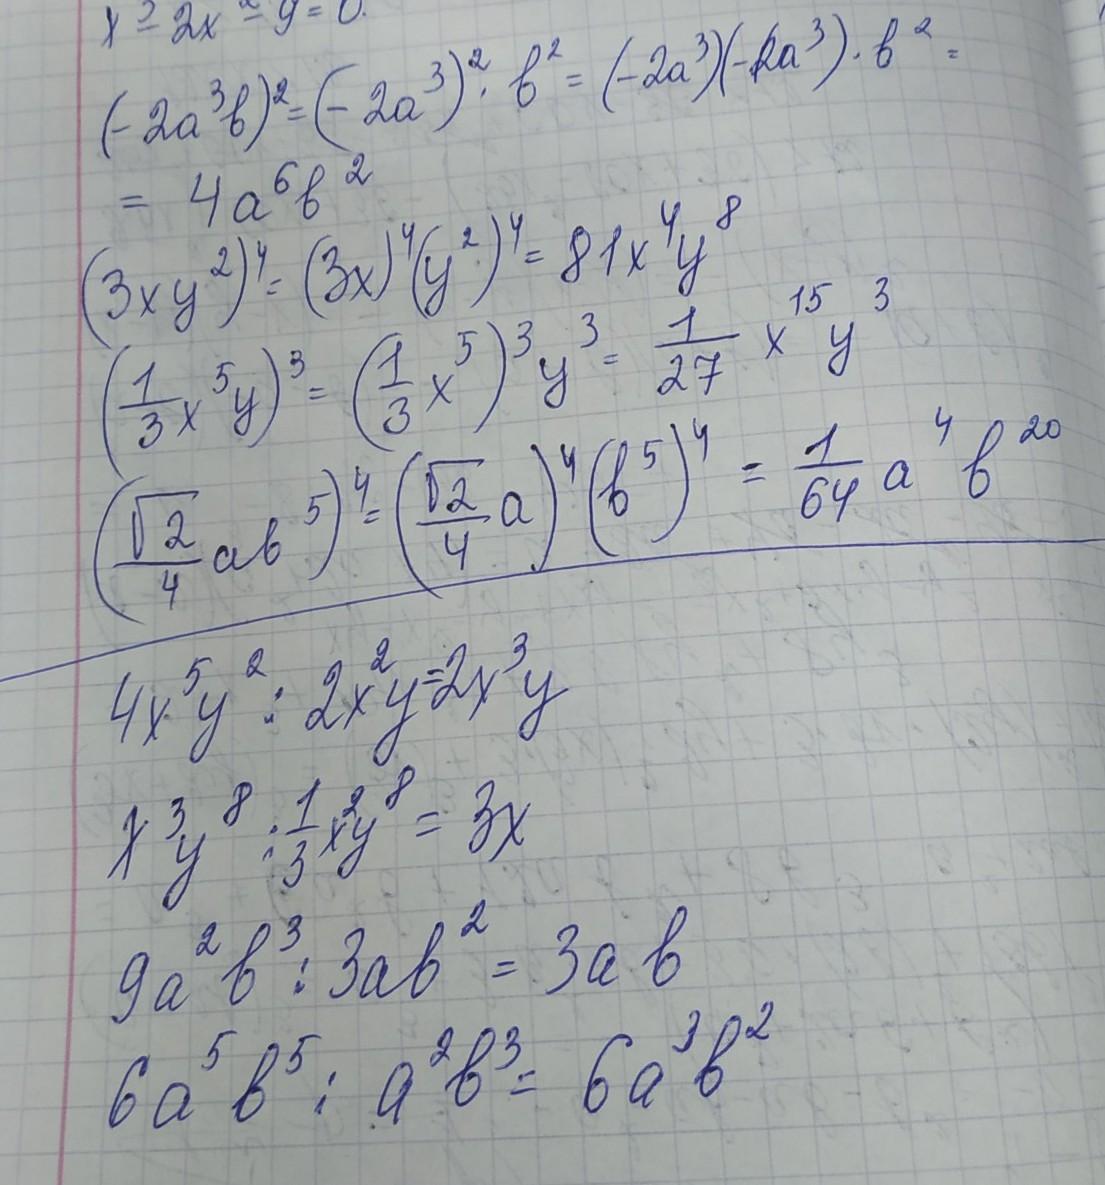 x³ - 2x² - y = 0.
(-2a³b)² = (-2a³)² · b² = (-2a³)(-2a³) · b² =
= 4a⁶b²
(3xy²)⁴ = (3x)⁴(y²)⁴ = 81x⁴y⁸
(1/3 x⁵y)³ = (1/3 x⁵)³ y³ = 1/27 x¹⁵ y³
(√2/4 ab⁵)⁴ = (√2/4 a)⁴ (b⁵)⁴ = 1/64 a⁴ b²⁰
4x⁵y² : 2x²y = 2x³y
x³y⁸ : 1/3 x²y⁸ = 3x
9a²b³ : 3ab² = 3ab
6a⁵b⁵ : a²b³ = 6a³b²